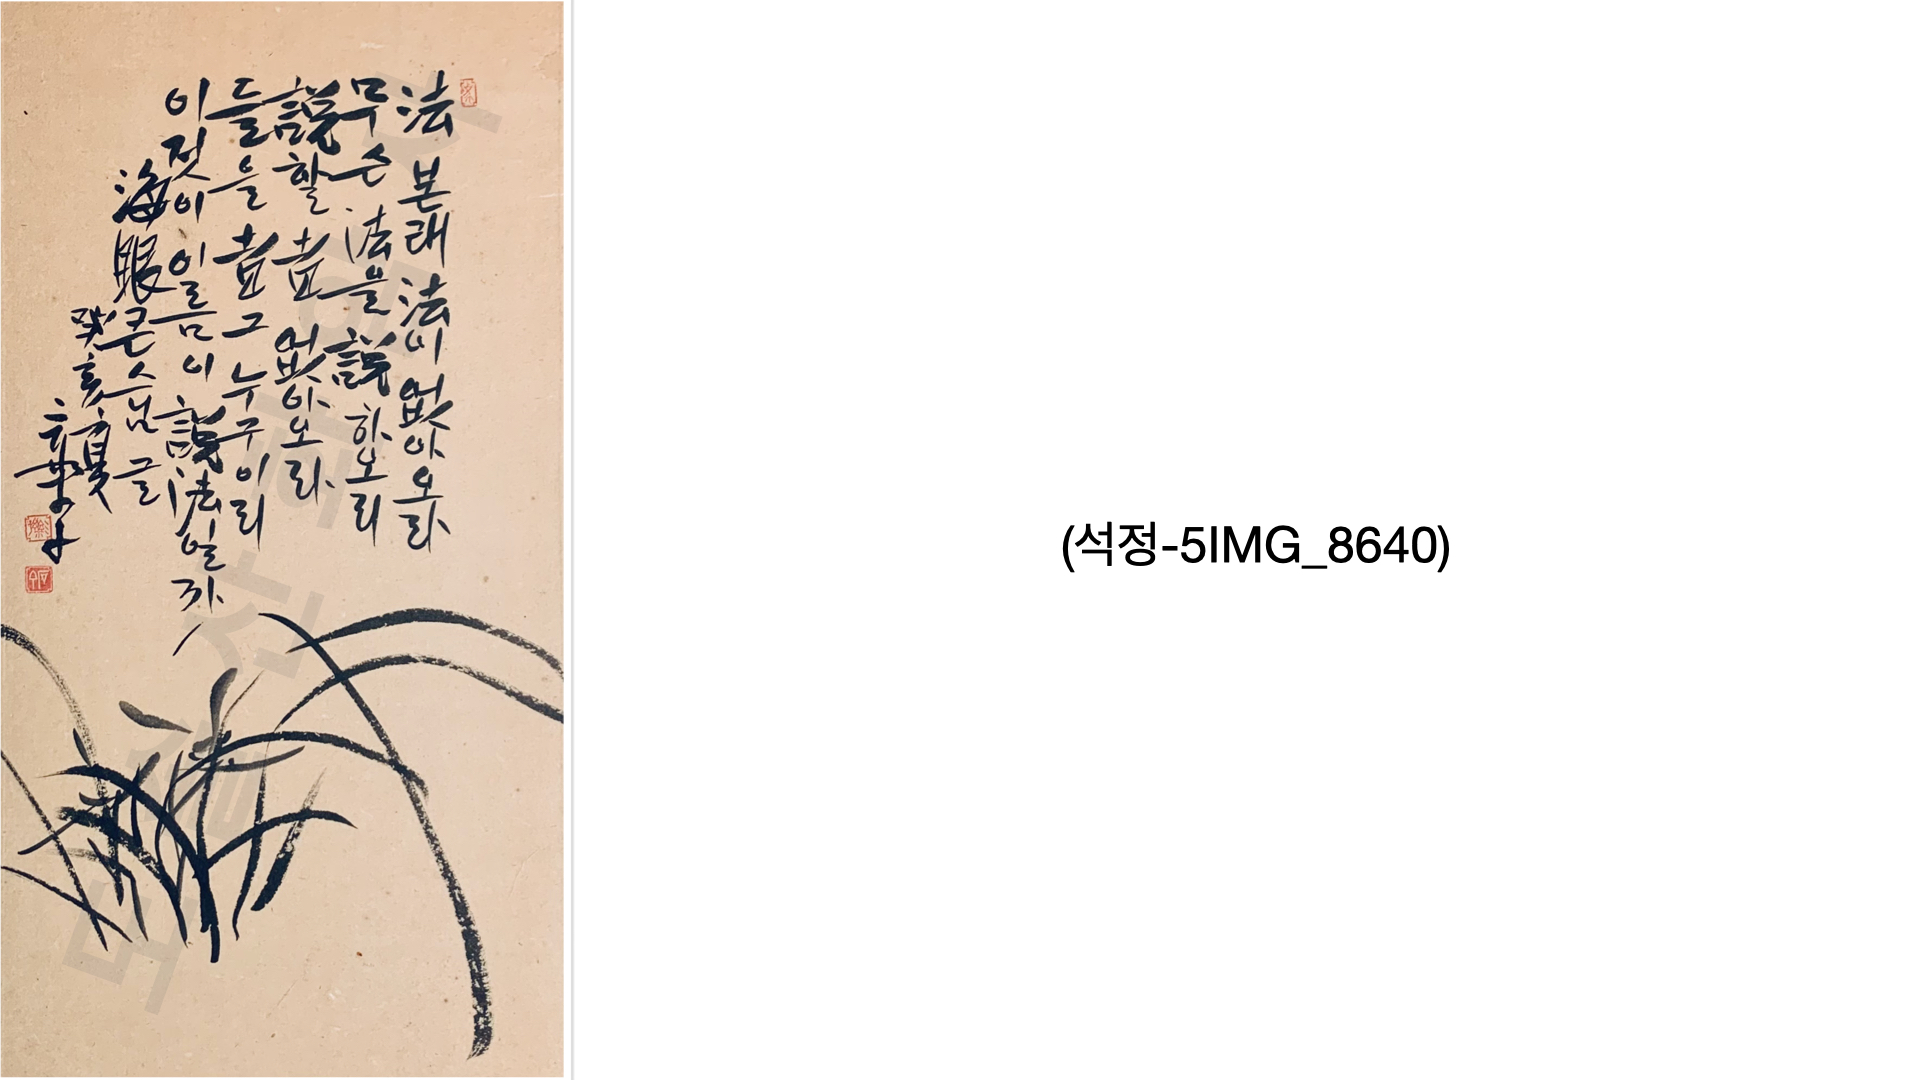 法 본래 法이 없아오라
무슨 法을 說하오리
說할 者 없아오라
들을 者 그 누구이리
이 젓이 이름이 說法일까
海眼 큰스님 글
癸亥 夏
(석정-5IMG_8640)